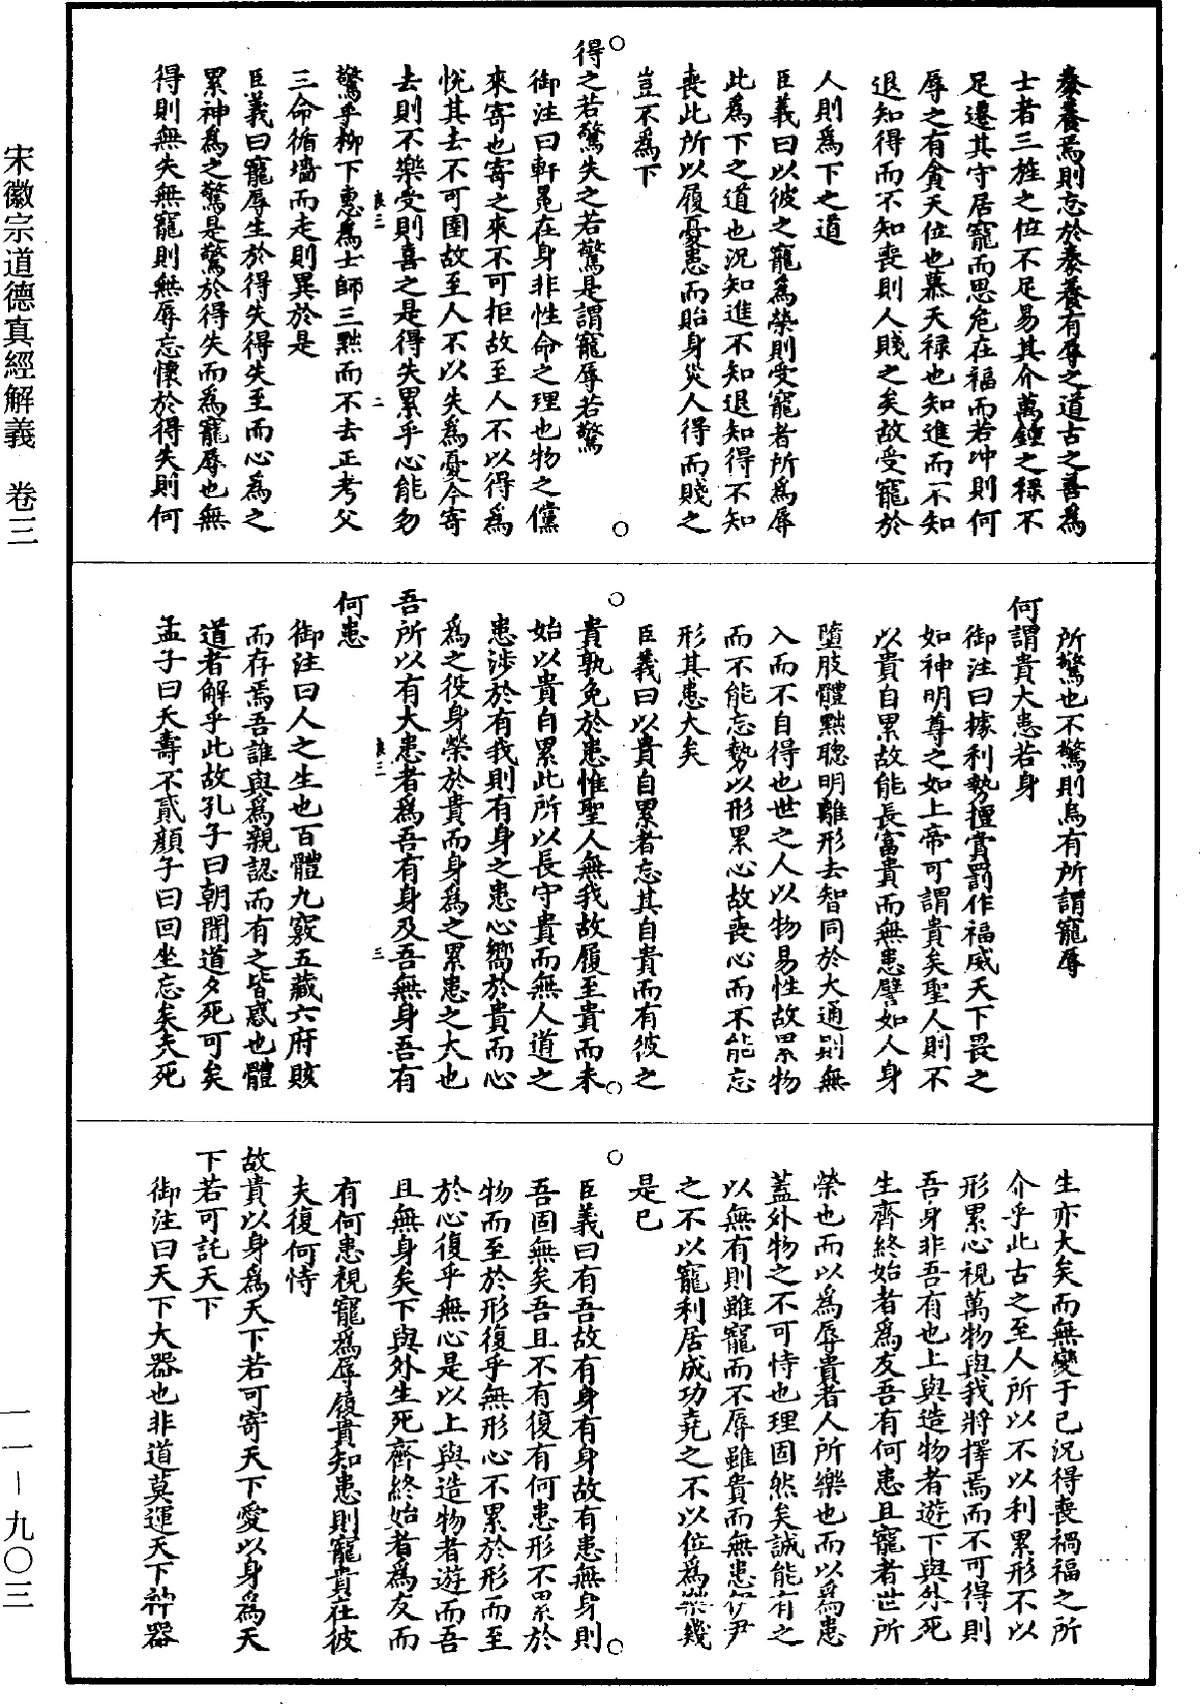 宋徽宗道德真經解義 卷三
一一—九〇三
豢養焉則忘於豢養有辱之道古之善爲
士者三旌之位不足易其介萬鍾之祿不
足遷其守居寵而思危在福而若冲則何
辱之有貪天位也慕天禄也知進而不知
退知得而不知喪則人賤之矣故受寵於
人則爲下之道
臣義曰以彼之寵爲榮則受寵者所爲辱
此爲下之道也況知進不知退知得不知
喪此所以履憂患而貽身災人得而賤之
豈不爲下
得之若驚失之若驚是謂寵辱若驚
御注曰軒冕在身非性命之理也物之儻
來寄也寄之來不可拒故至人不以得爲
悅其去不可圉故至人不以失爲憂今寄
去則不樂受則喜之是得失累乎心能勿
良三
二
驚乎柳下惠爲士師三黜而不去正考父
三命循墻而走則異於是
臣義曰寵辱生於得失得失至而心爲之
累神爲之驚是驚於得失而爲寵辱也無
得則無失無寵則無辱忘懷於得失則何
所驚也不驚則烏有所謂寵辱
何謂貴大患若身
御注曰據利勢擅賞罰作福威天下畏之
如神明尊之如上帝可謂貴矣聖人則不
以貴自累故能長富貴而無患譬如人身
墮肢體黜聰明離形去智同於大通則無
入而不自得也世之人以物易性故累物
而不能忘勢以形累心故喪心而不能忘
形其患大矣
臣義曰以貴自累者忘其自貴而有彼之
貴孰免於患惟聖人無我故履至貴而未
始以貴自累此所以長守貴而無人道之
患涉於有我則有身之患心嚮於貴而心
爲之役身榮於貴而身爲之累患之大也
吾所以有大患者爲吾有身及吾無身吾有
良三
三
何患
御注曰人之生也百體九竅五藏六府賅
而存焉吾誰與爲親認而有之皆惑也體
道者解乎此故孔子曰朝聞道夕死可矣
孟子曰夭壽不貳顏子曰回坐忘矣夫死
生亦大矣而無變于已況得喪禍福之所
介乎此古之至人所以不以利累形不以
形累心視萬物與我將擇焉而不可得則
吾身非吾有也上與造物者遊下與外死
生齊終始者爲友吾有何患且寵者世所
榮也而以爲辱貴者人所樂也而以爲患
蓋外物之不可恃也理固然矣誠能有之
以無有則雖寵而不辱雖貴而無患伊尹
之不以寵利居成功堯之不以位爲樂幾
是已
臣義曰有吾故有身有身故有患無身則
吾固無矣吾且不有復有何患形不累於
物而至於形復乎無形心不累於形而至
於心復乎無心是以上與造物者遊而吾
且無身矣下與外生死齊終始者爲友而
有何患視寵爲辱履貴知患則寵貴在彼
夫復何恃
故貴以身爲天下若可寄天下愛以身爲天
下若可託天下
御注曰天下大器也非道莫運天下神器